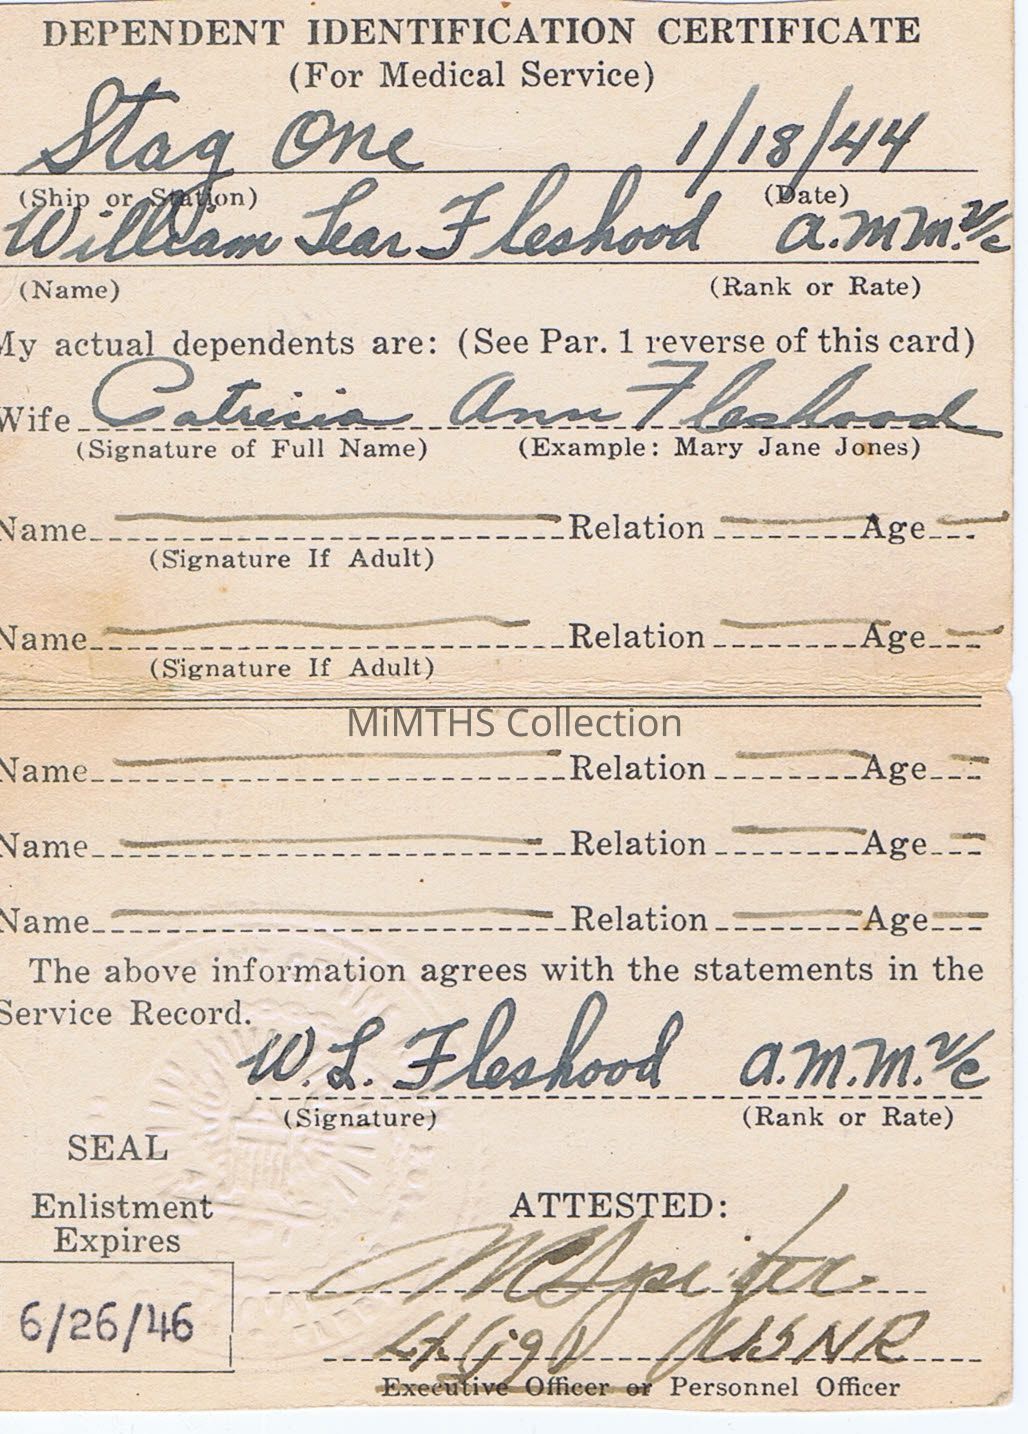 DEPENDENT IDENTIFICATION CERTIFICATE
(For Medical Service)
Stag One 1/18/44
(Ship or Station) (Date)
William Lear Fleshood a.m.m.2/c
(Name) (Rank or Rate)
My actual dependents are: (See Par. 1 reverse of this card)
Wife Patricia Ann Fleshood
(Signature of Full Name) (Example: Mary Jane Jones)
Name Relation Age
(Signature If Adult)
Name Relation Age
(Signature If Adult)
MiMTHS Collection
Name Relation Age
Name Relation Age
Name Relation Age
The above information agrees with the statements in the
Service Record.
W. L. Fleshood a.m.m.2/c
(Signature) (Rank or Rate)
SEAL
Enlistment ATTESTED:
Expires
6/26/46
Lt (jg) USNR
Executive Officer or Personnel Officer